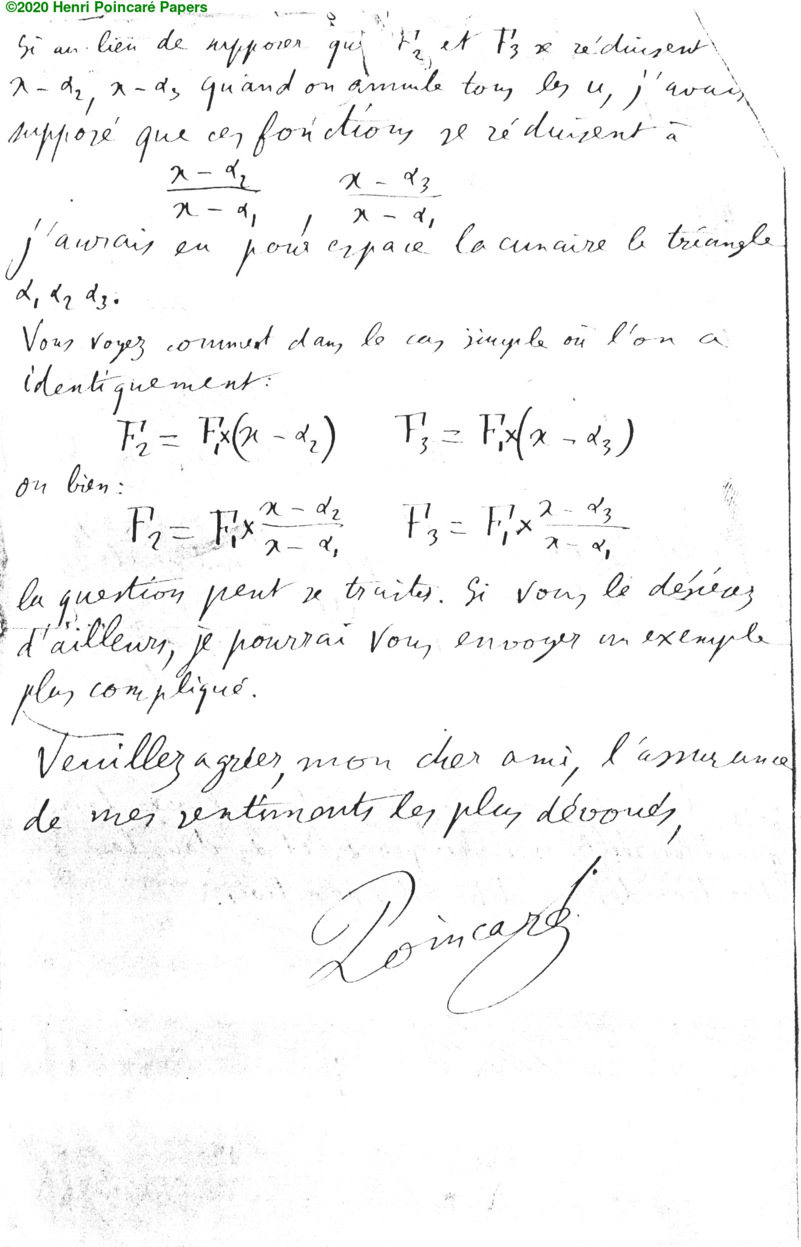 ©2020 Henri Poincaré Papers
Si au lieu de supposer que F₂ et F₃ se réduisent
x - α₂, x - α₃ quand on annule tous les u, j'avais
supposé que ces fonctions se réduisent à
(x - α₂)/(x - α₁) , (x - α₃)/(x - α₁)
j'aurais eu pour espace lacunaire le triangle
α₁ α₂ α₃.
Vous voyez comment dans le cas simple où l'on a
identiquement:
F₂ = F₁×(x - α₂) F₃ = F₁×(x - α₃)
ou bien:
F₂ = F₁× (x - α₂)/(x - α₁) F₃ = F₁× (x - α₃)/(x - α₁)
la question peut se traiter. Si vous le désirez
d'ailleurs, je pourrai vous envoyer un exemple
plus compliqué.
Veuillez agréer, mon cher ami, l'assurance
de mes sentiments les plus dévoués,
Poincaré